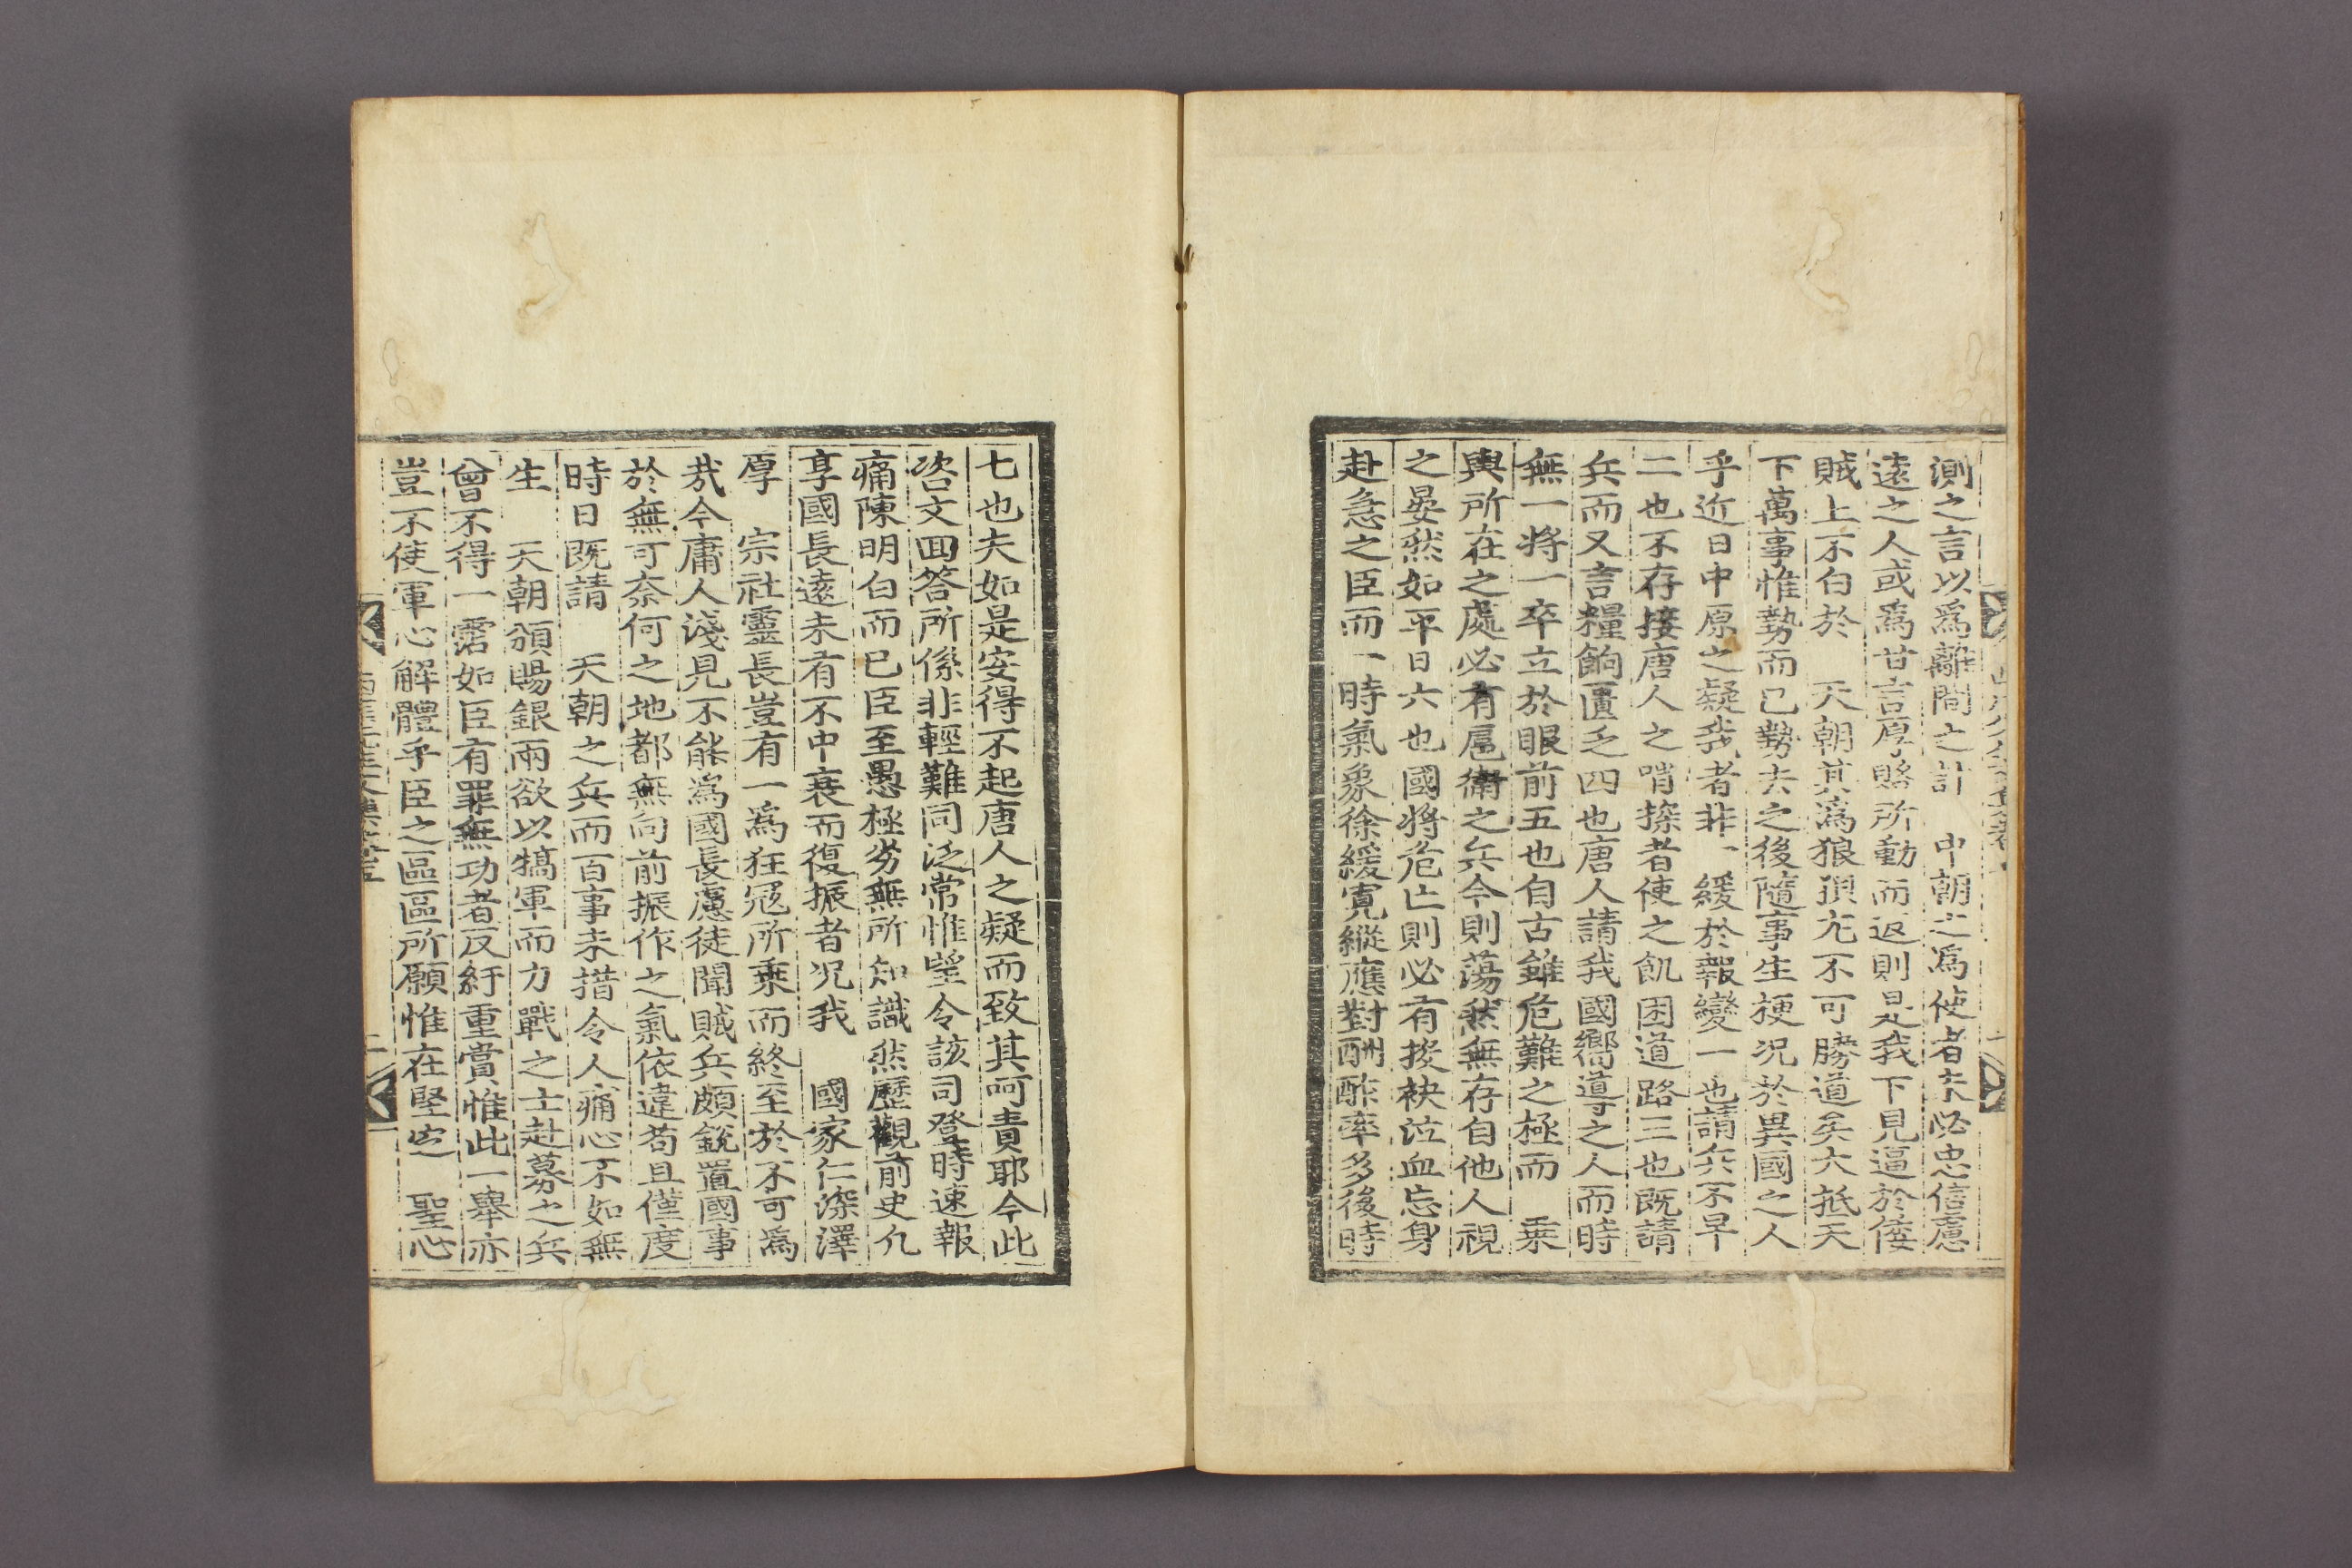 測之言以爲離間之計　中朝之爲使者未必忠信慮
遠之人或爲甘言厚賂所動而返則是我下見逼於倭
賊上不白於　天朝其爲狼狽尤不可勝道矣大抵天
下萬事惟勢而已勢去之後隨事生梗况於異國之人
乎近日中原之疑我者非一緩於報變一也請兵不早
二也不存接唐人之哨探者使之飢困道路三也旣請
兵而又言糧餉匱乏四也唐人請我國嚮導之人而時
無一將一卒立於眼前五也自古雖危難之極而　乘
輿所在之處必有扈衛之兵今則蕩然無存自他人視
之晏然如平日六也國將危亡則必有投袂泣血忘身
赴急之臣而一時氣象徐緩寬縱應對酬酢率多後時
七也夫如是安得不起唐人之疑而致其呵責耶今此
咨文回答所係非輕難同泛常惟望令該司登時速報
痛陳明白而已臣至愚極劣無所知識然歷觀前史凡
享國長遠未有不中衰而復振者况我　國家仁深澤
厚　宗社靈長豈有一爲狂寇所乘而終至於不可爲
哉今庸人淺見不能爲國長慮徒聞賊兵頗銳置國事
於無可奈何之地都無向前振作之氣依違苟且僅度
時日旣請　天朝之兵而百事未措令人痛心不如無
生　天朝頒賜銀兩欲以犒軍而力戰之士赴募之兵
曾不得一霑如臣有罪無功者反紆重賞惟此一擧亦
豈不使軍心解體乎臣之區區所願惟在堅定　聖心